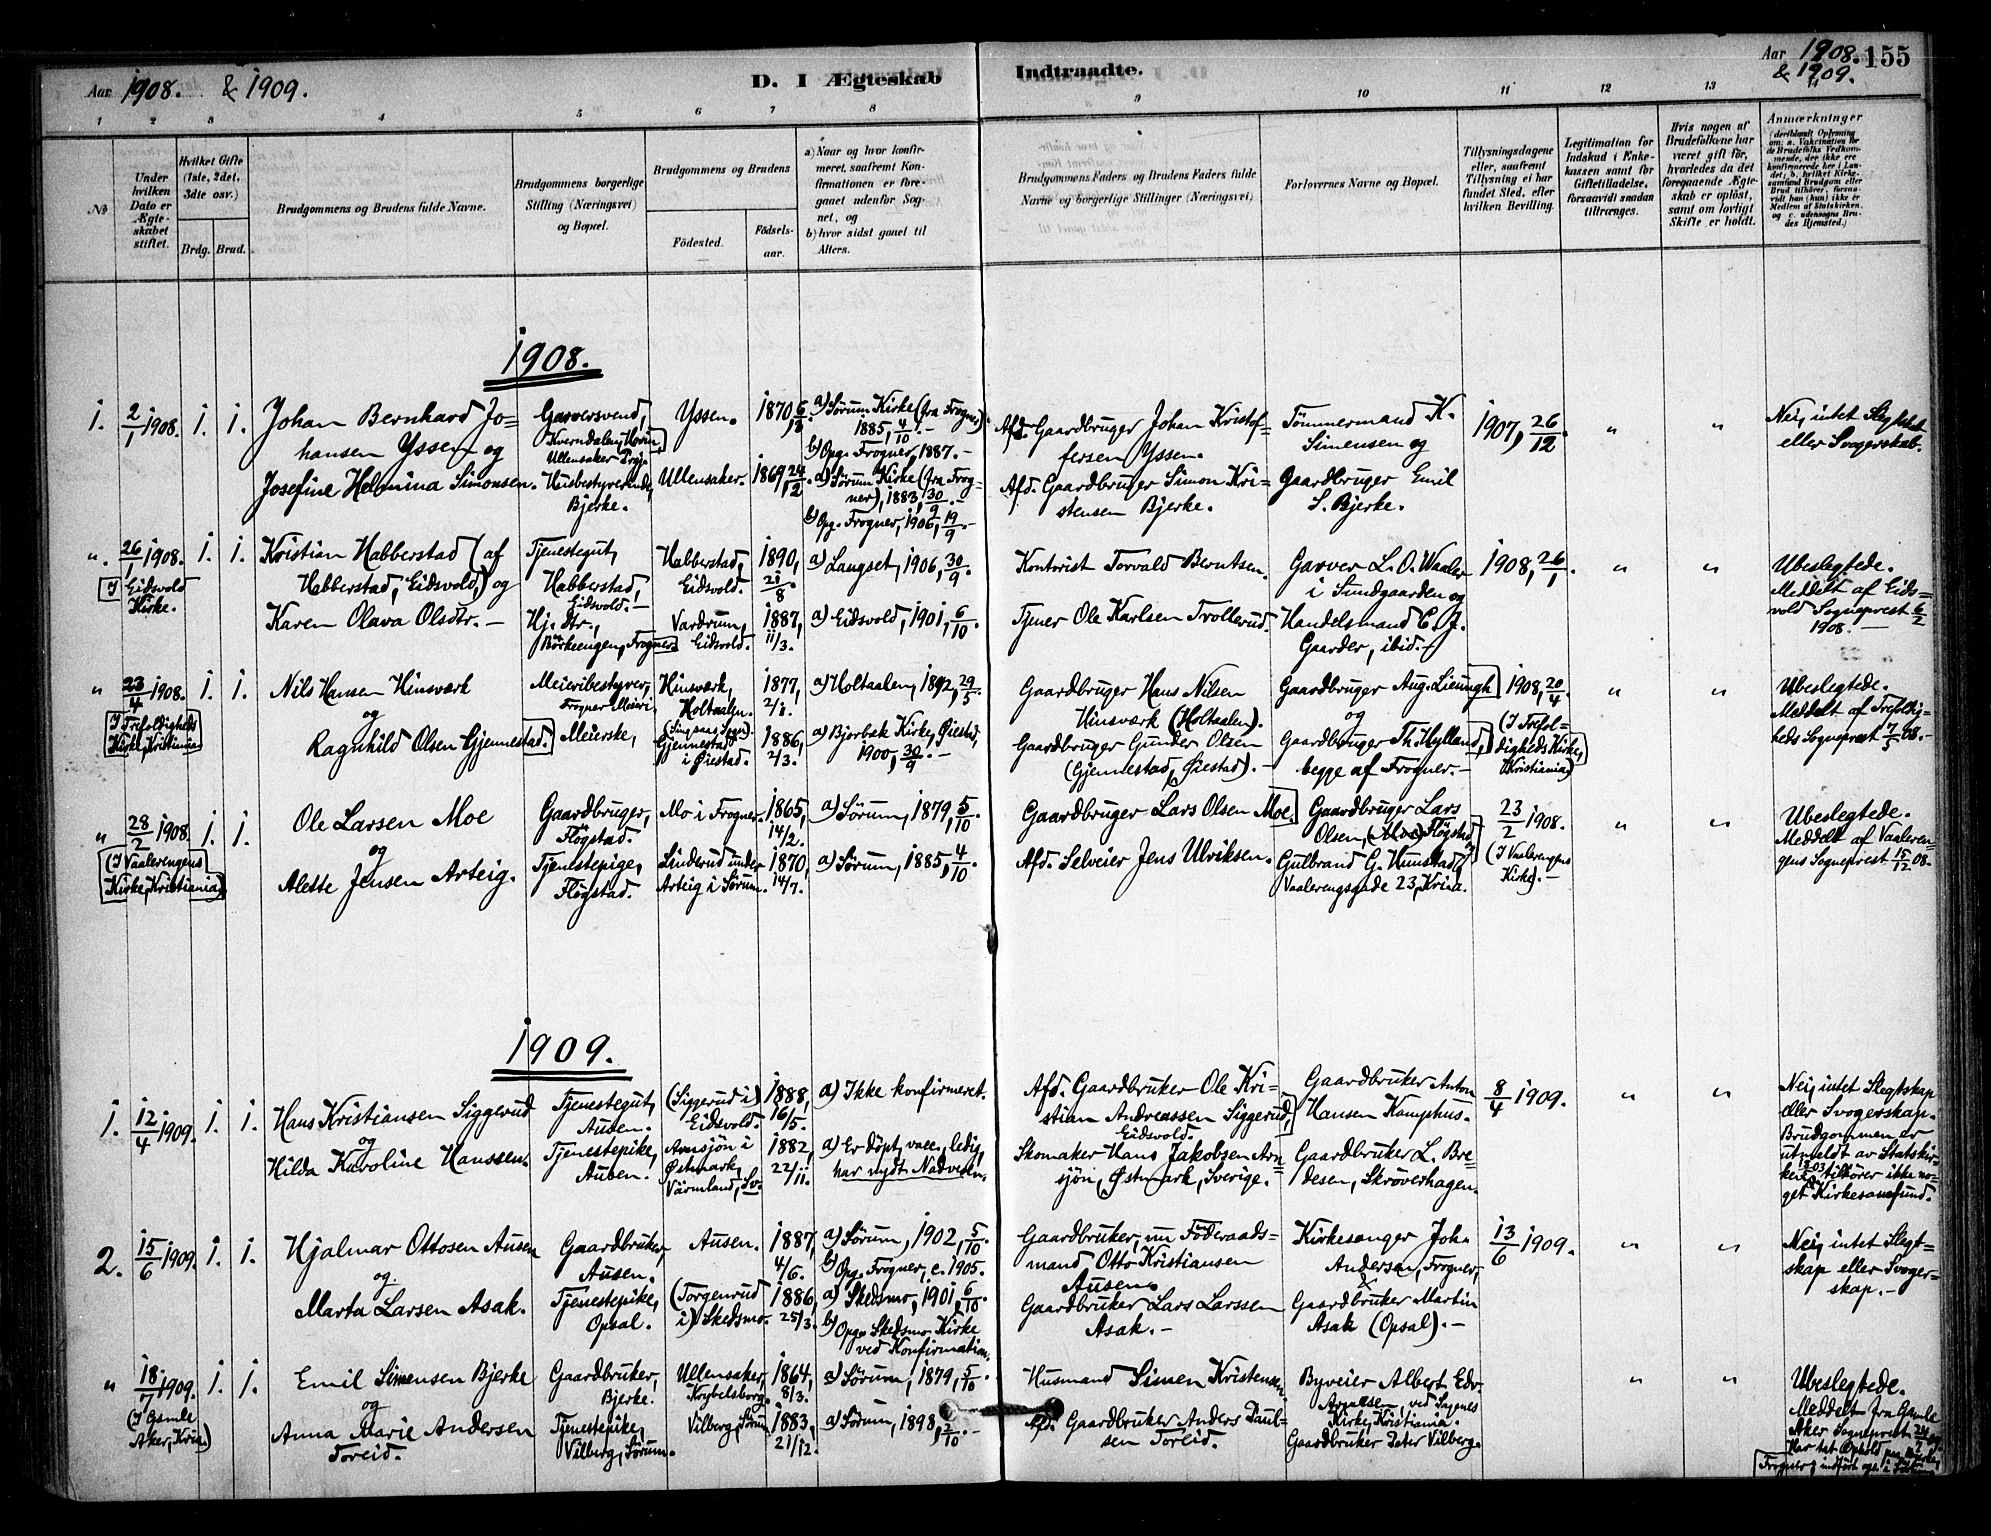 Aar 1908. & 1909.
D. I Ægteskab
Indtraadte.
Aar 1908. 155
& 1909.
1 2 3 4 5 6 7 8 9 10 11 12 13 14
№
Under hvilken Dato er Ægteskabet stiftet.
Hvilket Gifte (1ste, 2det, 3die osv.)
Brdg. Brud.
Brudgommens og Brudens fulde Navne.
Brudgommens borgerlige Stilling (Næringsvei) og Bopæl.
Brudgommens og Brudens
Födested.
Födselsaar.
a) Naar og hvor konfirmeret, saafremt Konfirmationen er foregaaet udenfor Sognet, og
b) hvor sidst gaaet til Alters.
Brudgommens Faders og Brudens Faders fulde Navne og borgerlige Stillinger (Næringsvei)
Forlovernes Navne og Bopæl.
Tillysningsdagene eller, saafremt Tillysning ei har fundet Sted, efter hvilken Bevilling.
Legitimation for Indskud i Enkekassen samt for Giftetilladelse, forsaavidt saadan tiltrænges.
Hvis nogen af Brudefolkene har været gift för, hvorledes da det foregaaende Ægteskab er oplöst, samt om lovligt Skifte er holdt.
Anmærkninger
(deriblandt Oplysning om: a. Vaccination for de Brudefolks Vedkommende, der ikke ere konfirmerede her i Landet; b. hvilket Kirkesamfund Brudgom eller Brud tilhörer, forsaavidt han (hun) ikke er Medlem af Statskirken, og c. udensogns Brudes Hjemsted.)
1908.
1. 2/1 1908. 1. 1.
Johan Bernhard Johansen Yssen og
Garversvend, Kverndalen, Hovin Ullensaker Prgj.
Yssen.
1870, 6/12.
a) Sørum Kirke (fra Frogner) 1885, 4/10.-
b) Opg. Frogner, 1887.-
Afd. Gaardbruger Johan Kristoffersen Yssen.
Tömmermand K. Simensen og
1907, 26/12
" "
Nei, intet Slegtskab eller Svogerskab.
Josefine Helmina Simonsen.
Husbestyrerinde, Bjerke.
Ullensaker.
1869, 24/2.
a) Sørum Kirke (fra Frogner), 1883, 30/9.-
b) Opg. Frogner, 1906, 19/9.-
Afd. Gaardbruger Simon Kristensen Bjerke.
Gaardbruger Emil S. Bjerke.
". 26/1 1908. 1. 1.
I Eidsvold Kirke.
Kristian Habberstad (af Habberstad, Eidsvold,) og
Tjenestegut, Habberstad, Eidsvold.-
Habberstad, Eidsvold.
1890, 21/8.
a) Langset, 1906, 30/9.
Kontorist Torvald Berntsen.
Garver L. O. Waaler i Sundgaarden og
1908, 26/1.
" "
Ubeslegtede. Meddelt af Eidsvold Sogneprest 6/2 1908.-
Karen Olava Olsdtr.-
Hj. dtr., Börkeengen, Frogner.
Vardrum, Eidsvold.
1887, 11/3.
a) Eidsvold, 1901, 6/10.
Tjener Ole Karlsen Trollerud.
Handelsmand C. J. Gaarder, ibid.-
" 23/4 1908. 1. 1.
(I Trefoldigheds Kirke, Kristiania)
Nils Hansen Hinsværk og
Meieribestyrer, Frogner Meieri.
Hinsværk, Holtaalen.
1877, 2/1.
a) Holtaalen, 1892, 29/5.
Gaardbruger Hans Nilsen Hinsværk (Holtaalen).
Gaardbruger Aug. Lieungh og
1908, 20/4.
(I Trefoldigheds Kirke, Kristiania)
" "
Ubeslegtede. Meddelt af Trefoldigheds Sogneprest 7/5 08.-
Ragnhild Olsen Gjennestad.
Meierske,
Gjennestad i Øiestad.
1886, 2/3.
a) Bjorbæk Kirke, Øiestad, 1900, 30/9.-
Gaardbruger Gunder Olsen (Gjennestad, Øiestad).-
Gaardbruger Th. Hylland, begge af Frogner.-
" 28/2 1908. 1. 1.
(I Vaalerengens Kirke, Kristiania)
Ole Larsen Moe og
Gaardbruger, Flögstad.
Mo i Frogner.
1865, 14/2.
a) Sørum, 1879, 5/10.
Gaardbruger Lars Olsen Moe.
Gaardbruger Lars Olsen, Flögstad og
23/2 1908.
(I Vaalerengens Kirke).-
" "
Ubeslegtede. Meddelt af Vaalerengens Sogneprest 15/12 08.-
Alette Jensen Arteig.
Tjenestepige, Flögstad.
Linderud under Arteig i Sørum.
1870, 14/7.
a) Sørum, 1885, 4/10
Afd. Selveier Jens Ulriksen.
Gulbrand G. Hunstad, Vaalerengsgade 23, Kr.ia.
1909.
1. 12/4 1909. 1. 1.
Hans Kristiansen Siggerud og
Tjenestegut, Ausen.
(Siggerud i) Eidsvold.
1888, 16/5.
a) Ikke konfirmeret.
Afd. Gaardbruker Ole Kristian Andreassen Siggerud, Eidsvold.
Gaardbruker Anton Hansen Kamphus.
8/4 1909.
" "
Nei, intet Slegtskap eller Svogerskap. Brudgommen er utmeldt av Statskirken i 1903, tilhører ikke noget Kirkesamfund.
Hilda Karoline Hanssen.
Tjenestepike, Ausen.
Arnsjön i Østmark, Värmland, Sv.
1882, 22/11.
a) Er døpt, vacc., ledig, har nydt Nadveren.
Skomaker Hans Jakobsen Arnsjön, Østmark, Sverige.
Gaardbruker L. Bredesen, Skröverhagen.
2. 15/6 1909. 1. 1.
Hjalmar Ottosen Ausen og
Gaardbruker, Ausen.
Ausen.
1887, 4/6.
a) Sørum, 1902, 5/10.
b) Opg. Frogner, c. 1905.
Gaardbruker, nu Föderaadsmand Otto Kristiansen Ausen.
Kirkesanger Joh. Andersen, Frogner, &
13/6 1909.
" "
Nei, intet Slegtskap eller Svogerskap.-
Marta Larsen Asak.
Tjenestepike, Opsal.
(Torgenrud i) Skedsmo.
1886, 25/3.
a) Skedsmo, 1901, 6/10.
b) Opg. Skedsmo Kirke ved Konfirmation.
Gaardbruker Lars Larssen Asak.-
Gaardbruker Martin Asak (Opsal).-
" 18/7 1909. 1. 1.
(I Gamle Aker, Kr.ia.)
Emil Simensen Bjerke og
Gaardbruker, Bjerke.
Ullensaker,
1864, 8/3.
a) Sørum, 1879, 5/10
Husmand Simen Kristensen.
Byveier Albert Edv. Arnesen, ved Sagnes Kirke, Kristiania.
" "
Ubeslegtede. Meddelt fra Gamle Aker Sogneprest
Anna Marie Andersen Toreid.
Tjenestepike, Vilberg, Sörum.
Vilberg, Sörum.
1883, 21/12.
a) Sørum, 1898, 2/10.-
Afd. Gaardbruker Anders Paulsen Toreid.
Gaardbruker Peter Vilberg.